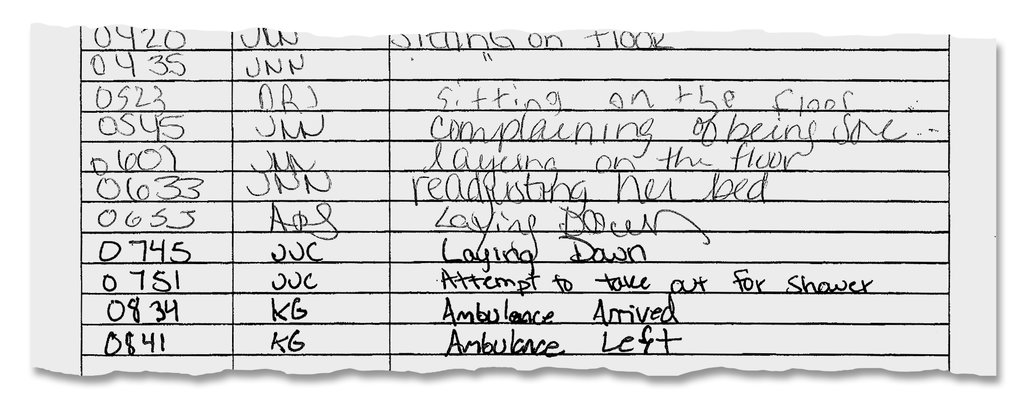 0420 JNN Sitting on floor
0435 JNN " "
0523 DRJ Sitting on the floor
0545 JNN complaining of being sore...
0607 JNN laying on the floor
0633 JNN readjusting her bed
0655 Laying Down
0745 JJC Laying Down
0751 JJC Attempt to take out for shower
0834 KG Ambulance Arrived
0841 KG Ambulance Left